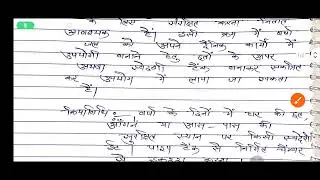 के लिए संरक्षित करना नितांत
आवश्यक है। इसी क्रम में वर्षा
जल को अपने दैनिक कार्यों में
उपयोगी बनाने हेतु छतों के ऊपर
अथवा स्वदेशी टैंक बनाकर एकत्रित
कर उपयोग में लाया जा सकता
है।
क्रियाविधि:- वर्षा के दिनों में घर की छत,
आँगन या आस-पास का
सुरक्षित स्थान पर किसी स्वदेशी
टैंक से निर्मित चैम्बर